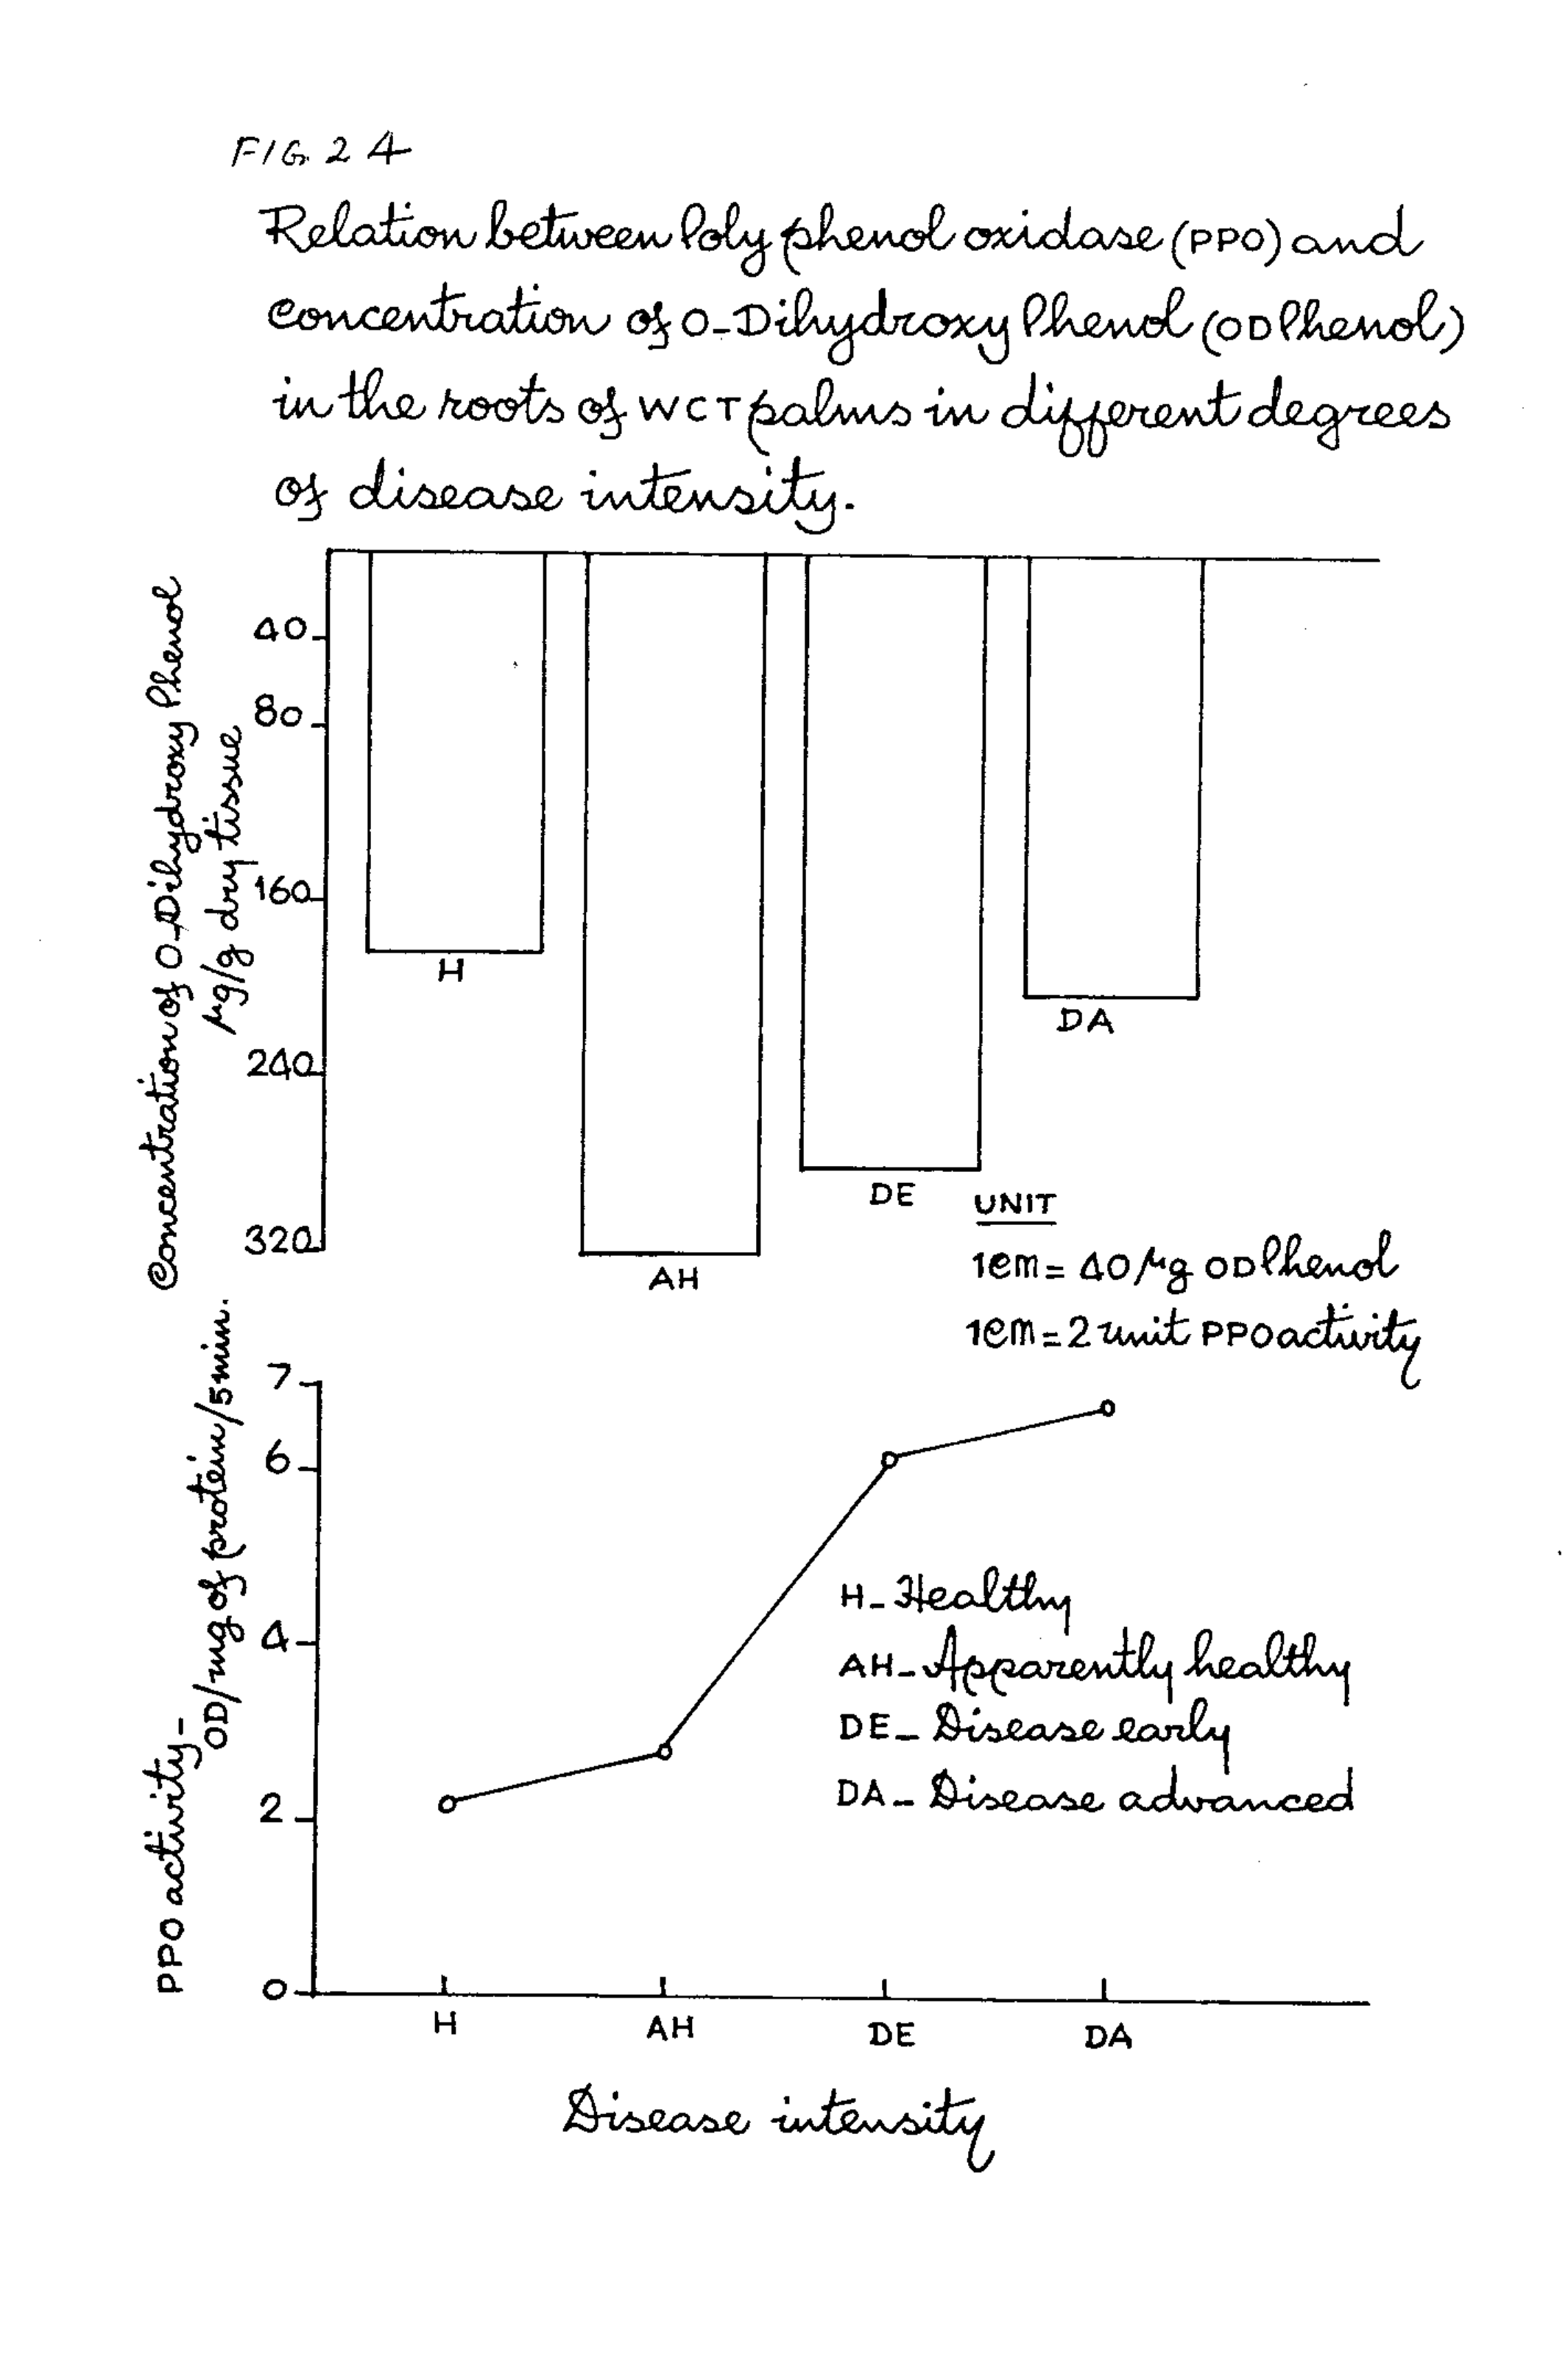 FIG. 24
Relation between Poly phenol oxidase (PPO) and
concentration of O-Dihydroxy Phenol (OD Phenol)
in the roots of WCT palms in different degrees
of disease intensity.
Concentration of O-Dihydroxy Phenol
µg/g dry tissue
40
80
160
240
320
H
AH
DE
DA
UNIT
1cm = 40 µg OD Phenol
1cm = 2 unit PPO activity
PPO activity -
OD/mg of protein/5min.
7
6
4
2
0
H - Healthy
AH - Apparently healthy
DE - Disease early
DA - Disease advanced
H
AH
DE
DA
Disease intensity